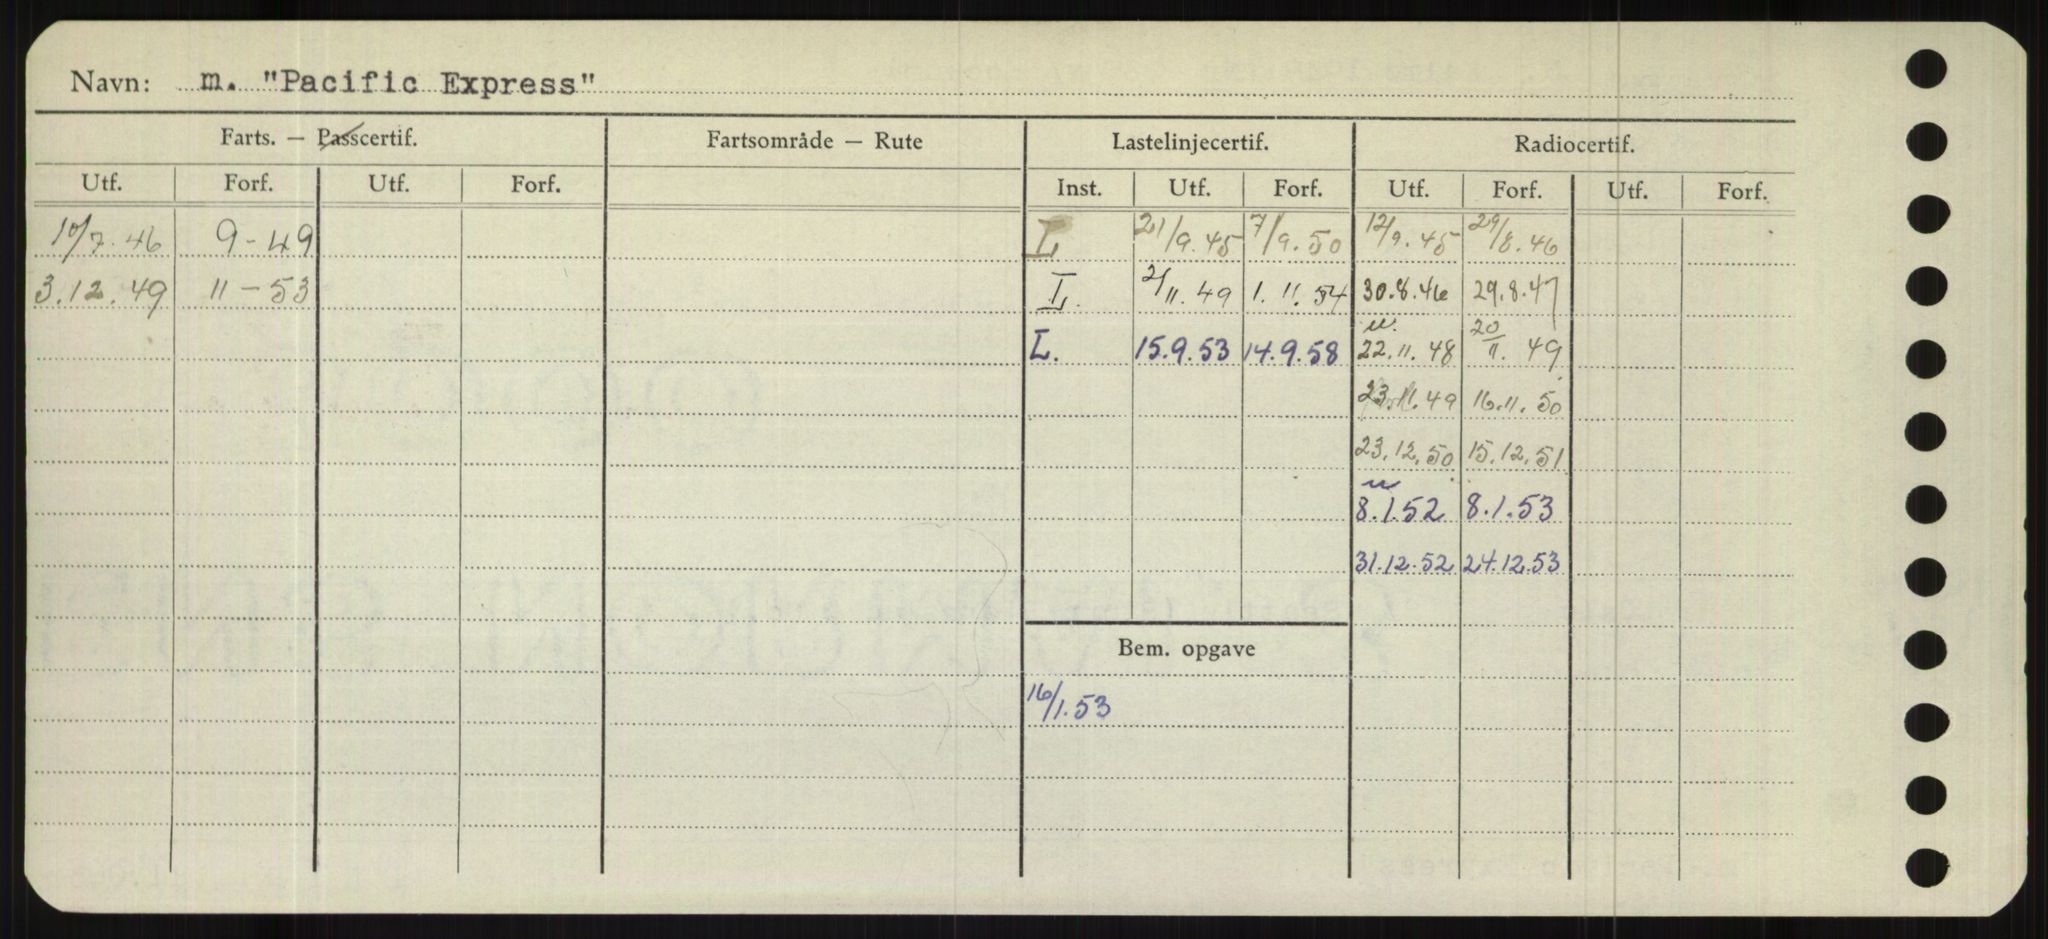 Navn: m. "Pacific Express"
Farts. — Passcertif. Fartsområde — Rute Lastelinjecertif. Radiocertif.
Utf. Forf. Utf. Forf. Inst. Utf. Forf. Utf. Forf. Utf. Forf.
10/7.46 9-49 L 21/9.45 7/9.50 12/9.45 29/8.46
3.12.49 11-53 L. 2/11.49 1.11.54 30.8.46 29.8.47
L. 15.9.53 14.9.58 22.11.48 20/11.49
23.11.49 16.11.50
23.12.50 15.12.51
8.1.52 8.1.53
31.12.52 24.12.53
Bem. opgave
16/1.53